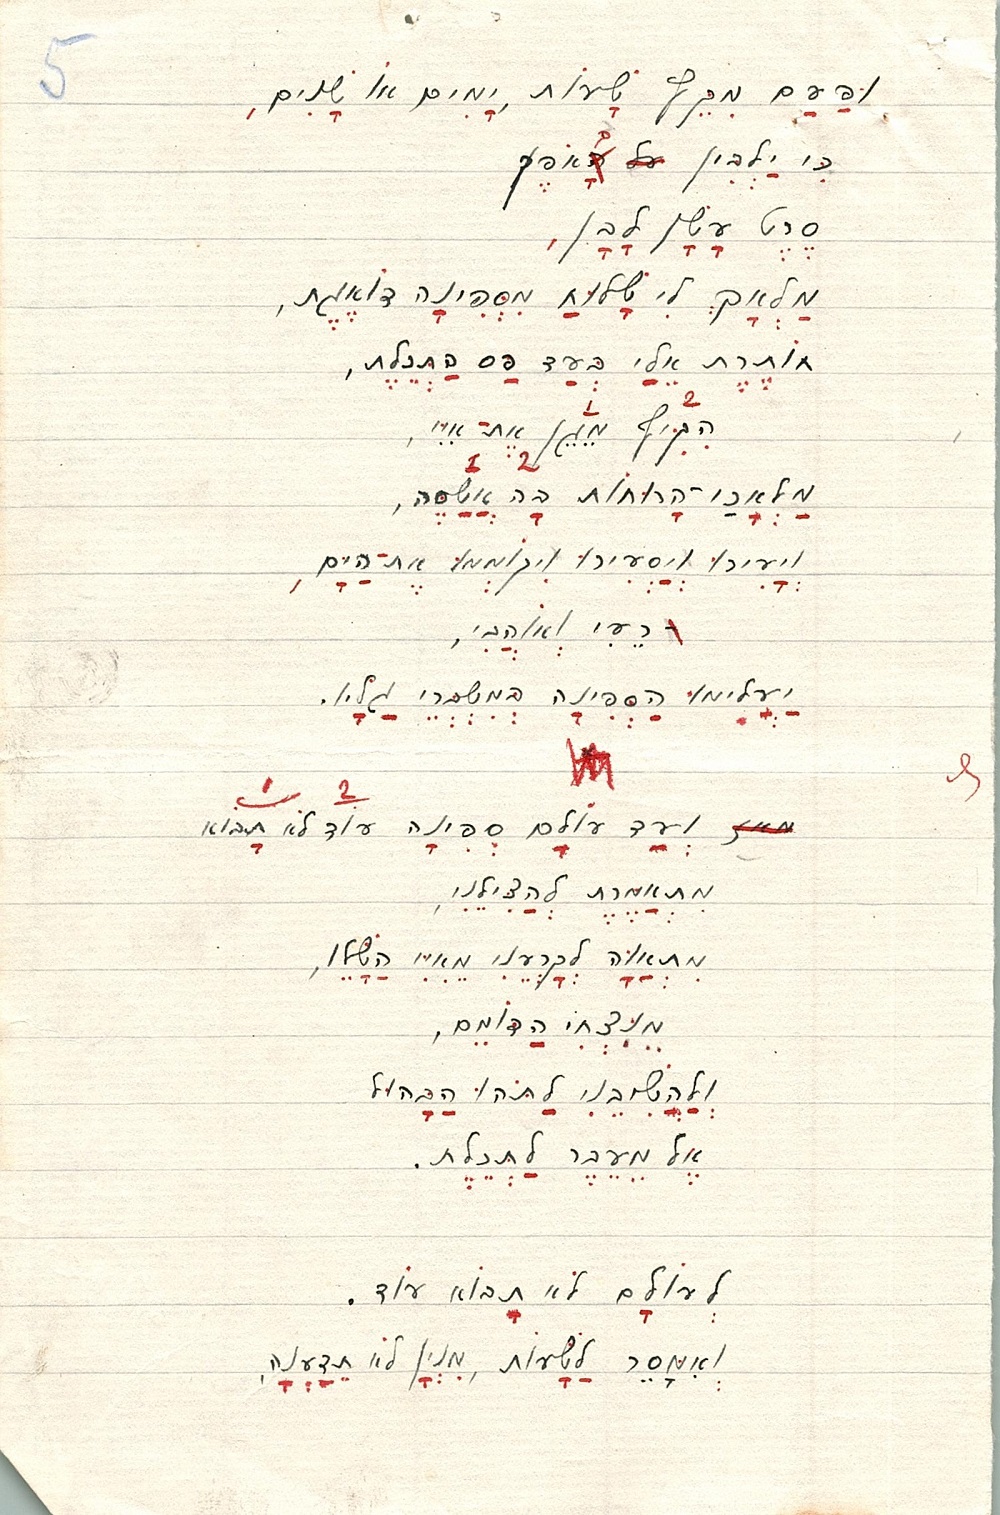 5
וּפַעַם מִקֵּץ שָׁעוֹת, יָמִים אוֹ שָׁנִים,
כִּי יַלְבִּין על הָאֹפֶק
סֶרֶט עָשָׁן לָבָן,
מַלְאָךְ לִי שָׁלוּחַ מִסְּפִינָה דּוֹאֶגֶת,
חוֹתֶרֶת אֵלַי בְּעַד פַּס הַתְּכֵלֶת,
2 1
הִקִּיף מֵגֵן אֶת־אִיִּי,
1 2
מַלְאֲכֵי־הָרוּחוֹת בָּהּ אֲשַׁסֶּה,
וְיָעִירוּ וְיַסְעִירוּ וִיקוֹמְמוּ אֶת־הַיָּם,
רֵעַי וְאוֹהֲבַי,
יַעֲלִימוּ הַסְּפִינָה בְּמִשְׁבְּרֵי גַלָּיו.
2 1
מאז וְעַד עוֹלָם סְפִינָה עוֹד לֹא תָבוֹא
מִתְאַמֶּרֶת לְהַצִּילֵנִי,
מִתְאַוָּה לְקָרְעֵנִי מֵאִיִּי הַשָּׁלֵו,
מִנִּצְחִי הַדּוֹמֵם,
וְלַהֲשִׁיבֵנִי לַתֹּהוּ הַבָּהוּל
אֶל מֵעֵבֶר לַתְּכֵלֶת.
לְעוֹלָם לֹא תָבוֹא עוֹד.
וְאִמָּסֵר לַשָּׁעוֹת, מִנְיָן לֹא תֵדַעְנָה,